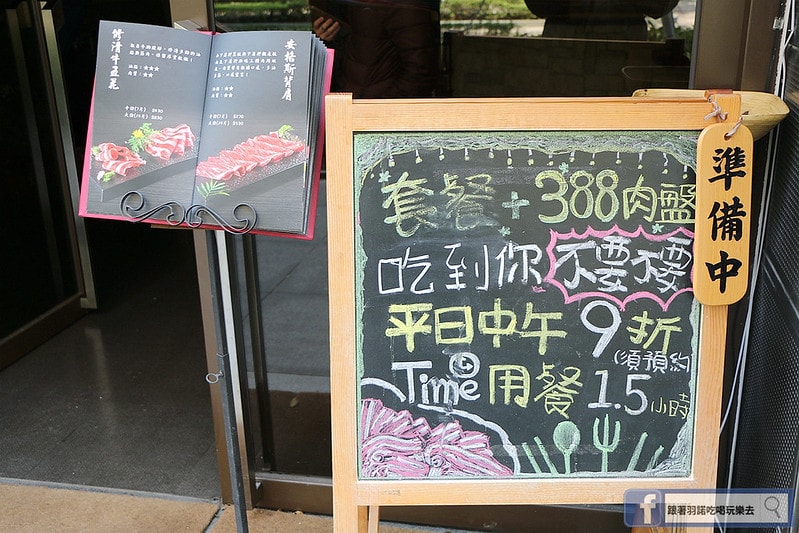 修清牛五花
油脂:★★★
肉質:★★
安格斯背肩
油脂:★★
肉質:★★
套餐+388肉盤
吃到你不要不要
平日中午9折
(須預約)
Time用餐1.5小時
準備中
跟著羽諾吃喝玩樂去